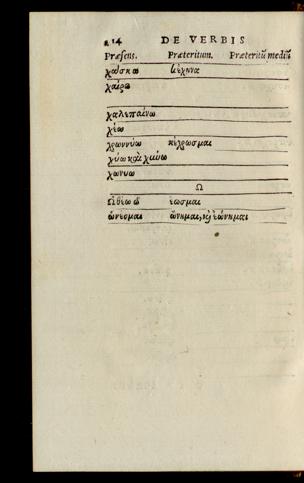 214 DE VERBIS
Præsens. Præteritum. Præteritū mediū
χάσκω κέχηνα
χαίρω
χαλεπαίνω
χέω
χρωννύω κέχρωσμαι
χύω καὶ χωννύω
χώνυω
Ω
ὠθέω ῶ ἔωσμαι
ὠνέομαι ὤνημαι, καὶ ἐώνημαι